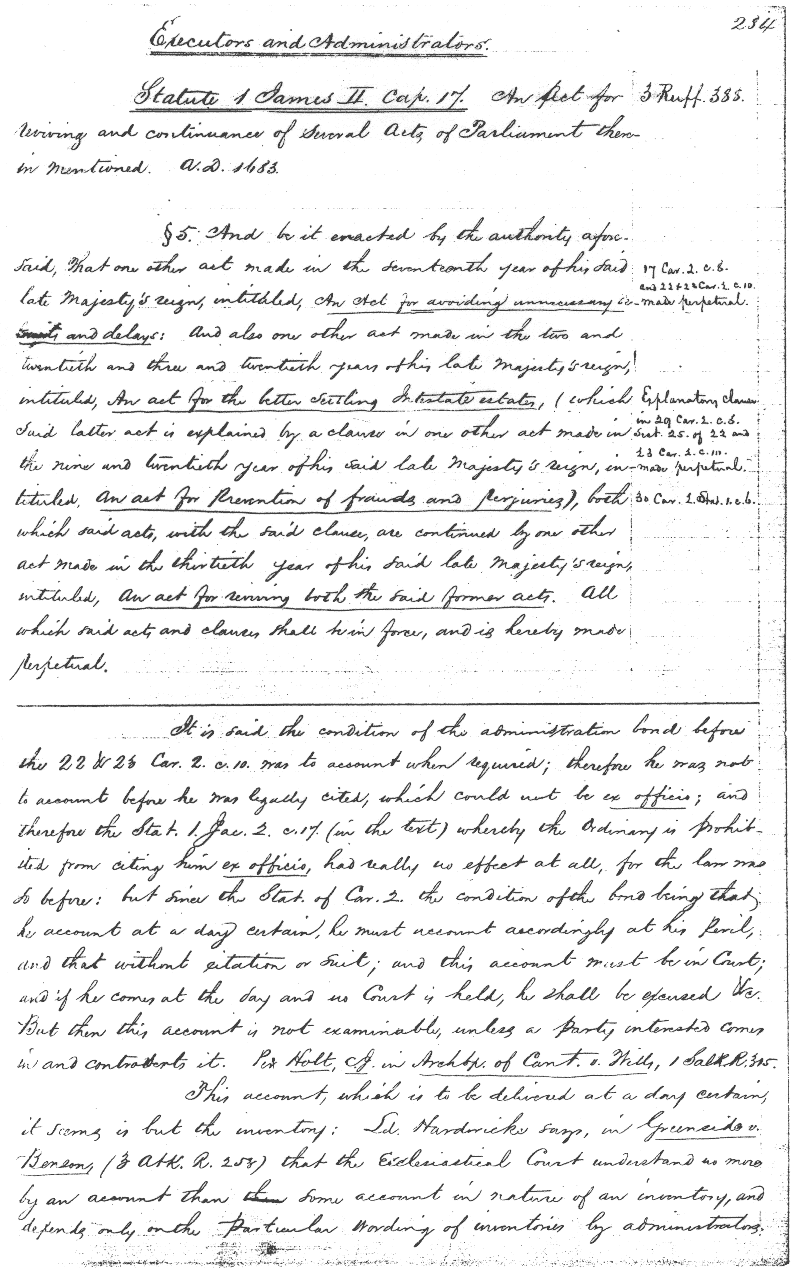 234
Executors and Administrators.
Statute 1 James II. Cap. 17. An Act for 3 Ruff. 385.
reviving and continuance of Several Acts of Parliament there-
in mentioned. A.D. 1683.
§5. And be it enacted by the authority afore-
said, That one other act made in the seventeenth year of his said
17 Car. 2. c. 8.
and 22 & 23 Car. 2. c. 10.
late Majesty's reign, intituled, An Act for avoiding unnecessary
made perpetual.
suits and delays: And also one other act made in the two and
twentieth and three and twentieth years of his late Majesty's reign,
intituled, An act for the better settling Intestate estates, (which
Explanatory clause
in 29 Car. 2. c. 3.
said latter act is explained by a clause in one other act made in
Sect. 25. of 22 and
23 Car. 2. c. 10.
the nine and twentieth year of his said late Majesty's reign, in-
made perpetual.
tituled, An act for Prevention of frauds and Perjuries), both
30 Car. 2. Stat. 1. c. 6.
which said acts, with the said clause, are continued by one other
act made in the thirtieth year of his said late Majesty's reign,
intituled, An act for reviving both the said former acts. All
which said acts and clauses shall be in force, and is hereby made
perpetual.
It is said the condition of the administration bond before
the 22 & 23 Car. 2. c. 10. was to account when required; therefore he was not
to account before he was legally cited, which could not be ex officio; and
therefore the Stat. 1. Jac. 2. c. 17. (in the text) whereby the Ordinary is Prohib-
ited from citing him ex officio, had really no effect at all, for the law was
so before: but since the Stat. of Car. 2. the condition of the bond being that
he account at a day certain, he must account accordingly at his Peril,
and that without citation or suit; and this account must be in Court;
and if he comes at the day and no Court is held, he shall be excused &c.
But then this account is not examinable, unless a Party interested comes
in and controverts it. Per Holt, C.J. in Archbp. of Cant. v. Wills, 1 Salk. R. 315.
This account, which is to be delivered at a day certain,
it seems is but the inventory: Ld. Hardwicke says, in Greenside v.
Benson, (3 Atk. R. 253) that the Ecclesiastical Court understand no more
by an account than some account in nature of an inventory, and
depends only on the Particular wording of inventories by administrators.